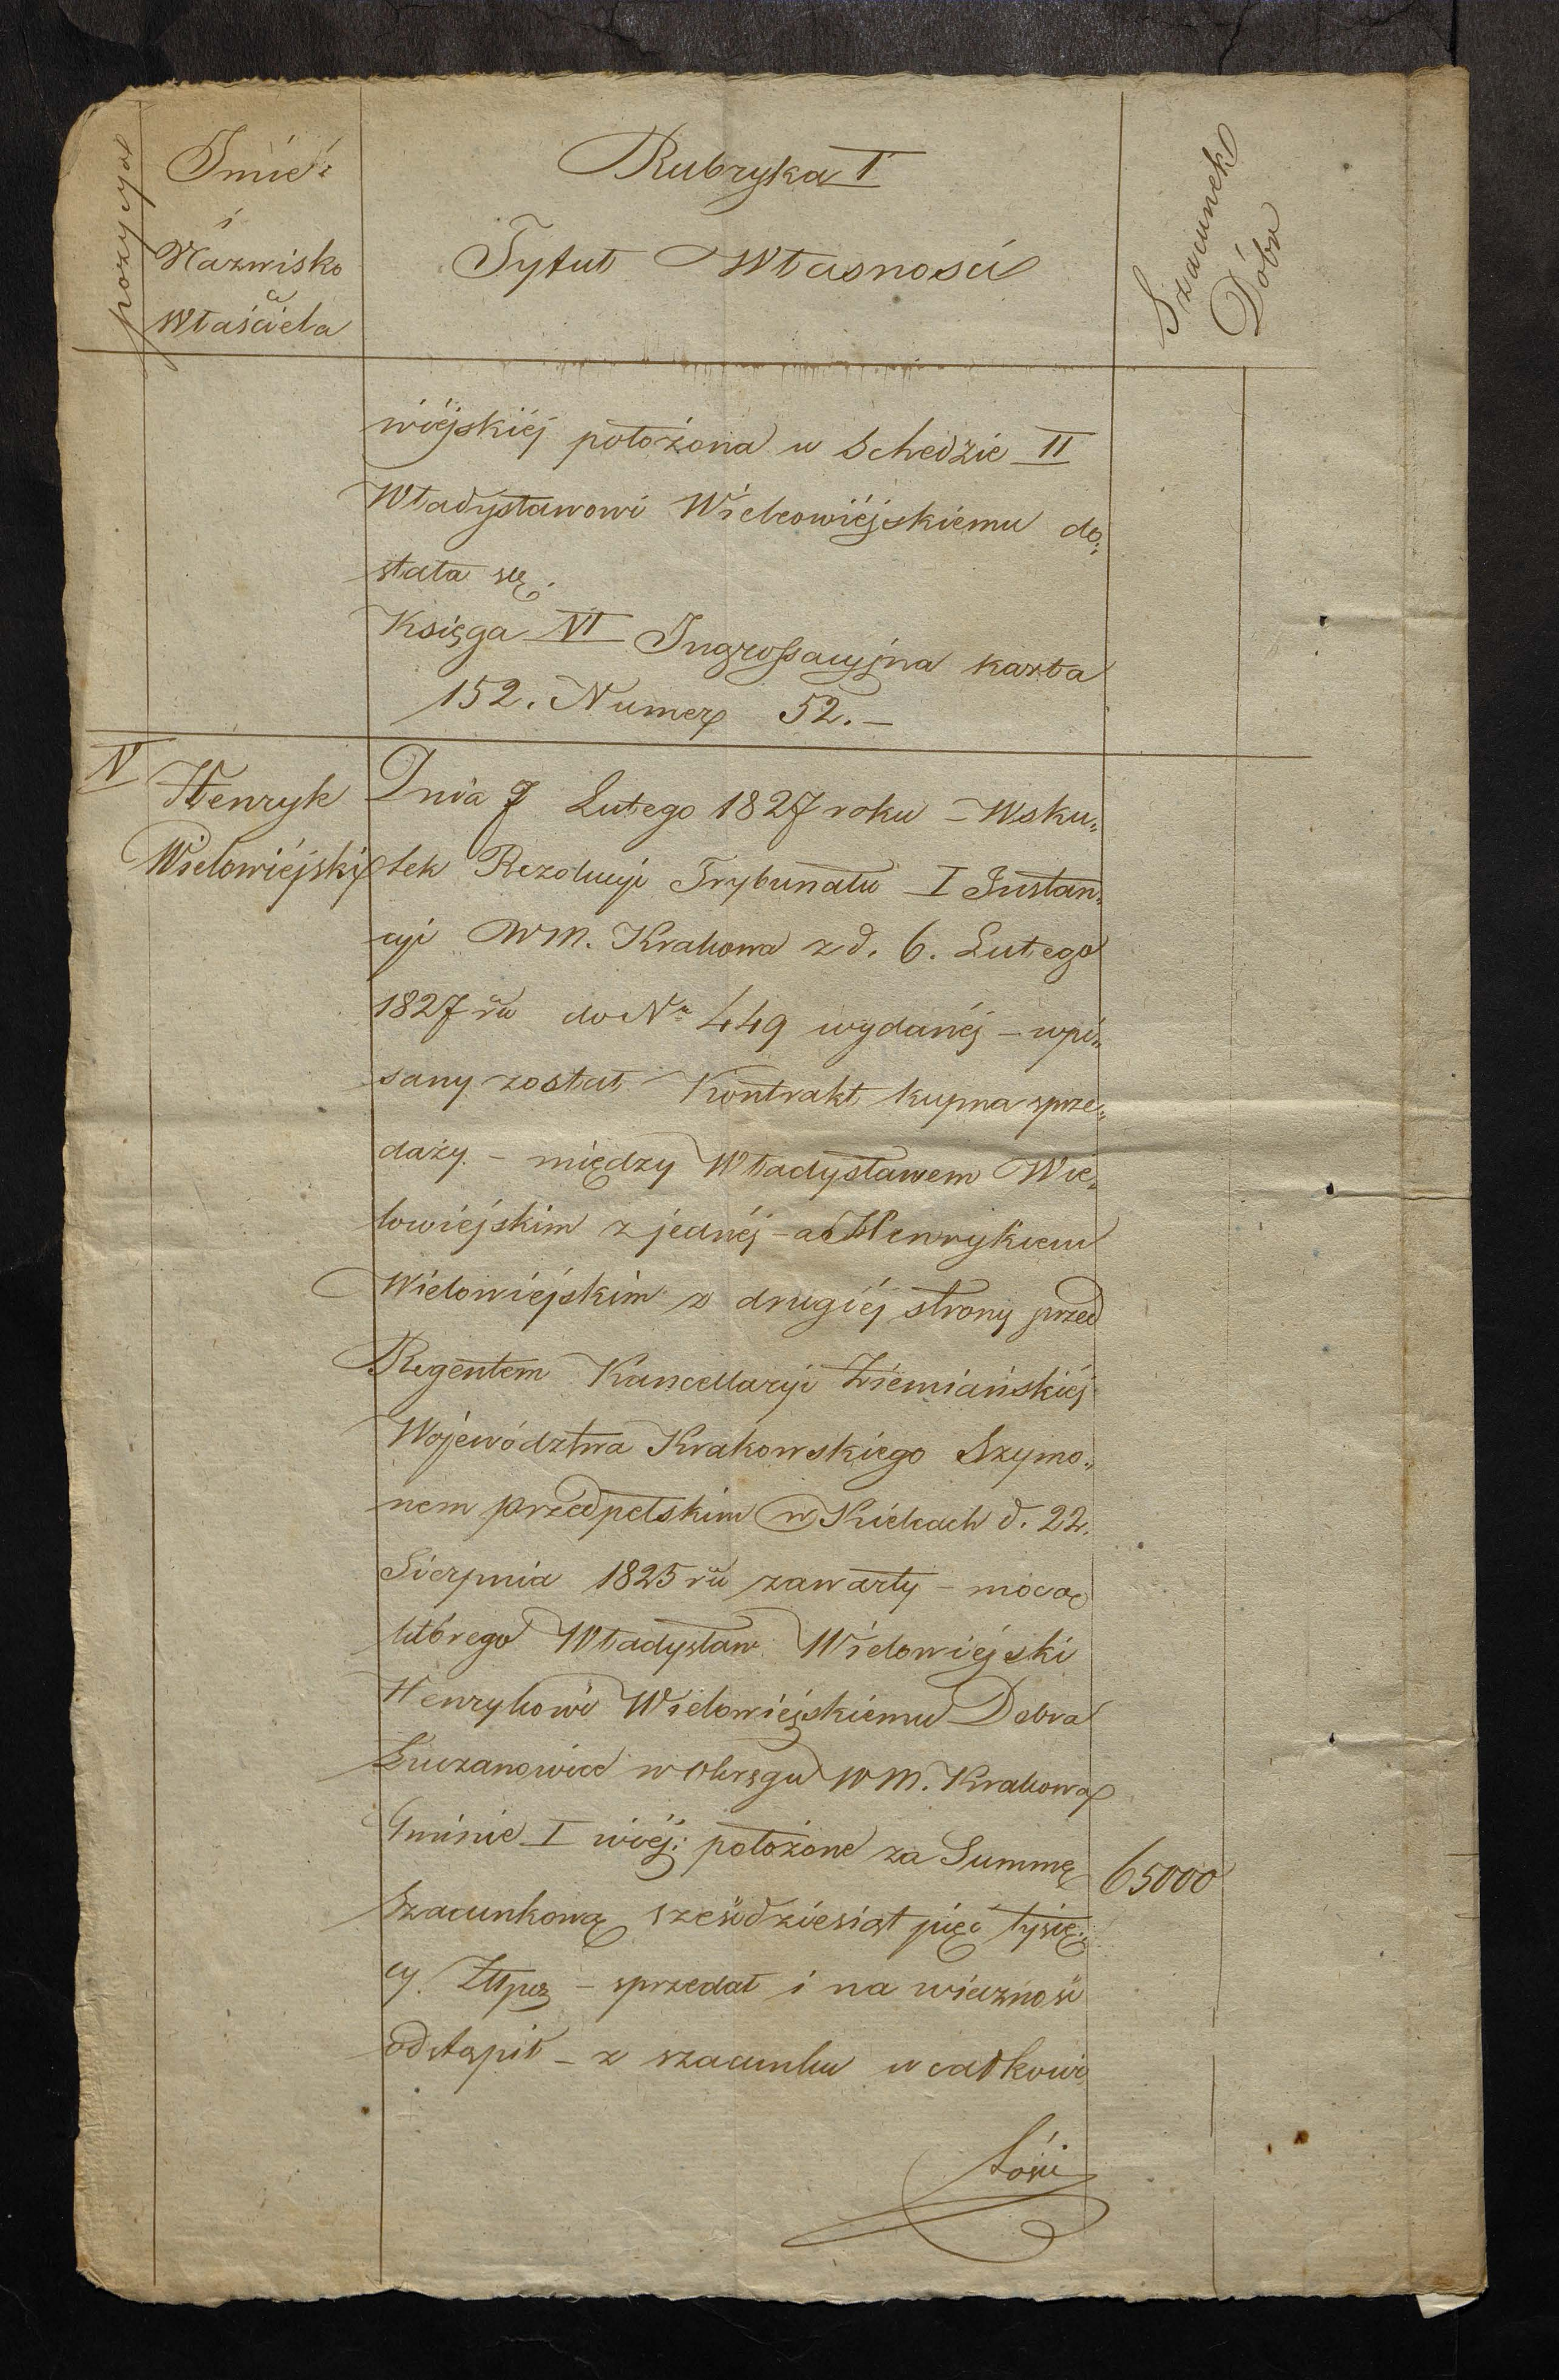 pozycya
Imie
i
Nazwisko
Właściciela
Rubryka I
Tytuł Własności
Szacunek
Dóbr
wiéjskiéj położona w Schedzie II
Władysławowi Wieloowiéjskiemu do„
stała się.
Księga VI Ingrossacyjna karta
152. Numer 52. –
V
Henryk
Wielowiéjski
Dnia 7 Lutego 1827 roku – Wsku„
tek Rezolucyi Trybunału I Instan„
cyi WM. Krakowa z d. 6. Lutego
1827 ru do Nr 449 wydanéj – wpi„
sany został Kontrakt kupna sprze„
daży – między Władysławem Wie„
lowiejskim z jednéj – a Henrykiem
Wielowiejskim z drugiéj strony przed
Regentem Kancellaryi Ziemiańskiéj
Województwa Krakowskiego Szymo„
nem Przedpełskim w Kielcach d. 22.
Sierpnia 1825 ru zawarty – mocą
którego Władysław Wielowiejski
Henrykowi Wielowiejskiemu Dobra
Łuczanowice w Okręgu WM. Krakowa
Gminie I wiéj: położone za Summę
65000
Szacunkową sześćdziesiąt pięć tysię„
cy Złłpsz – sprzedał i na wieczność
odstąpił – z szacunku w całkowi
tości